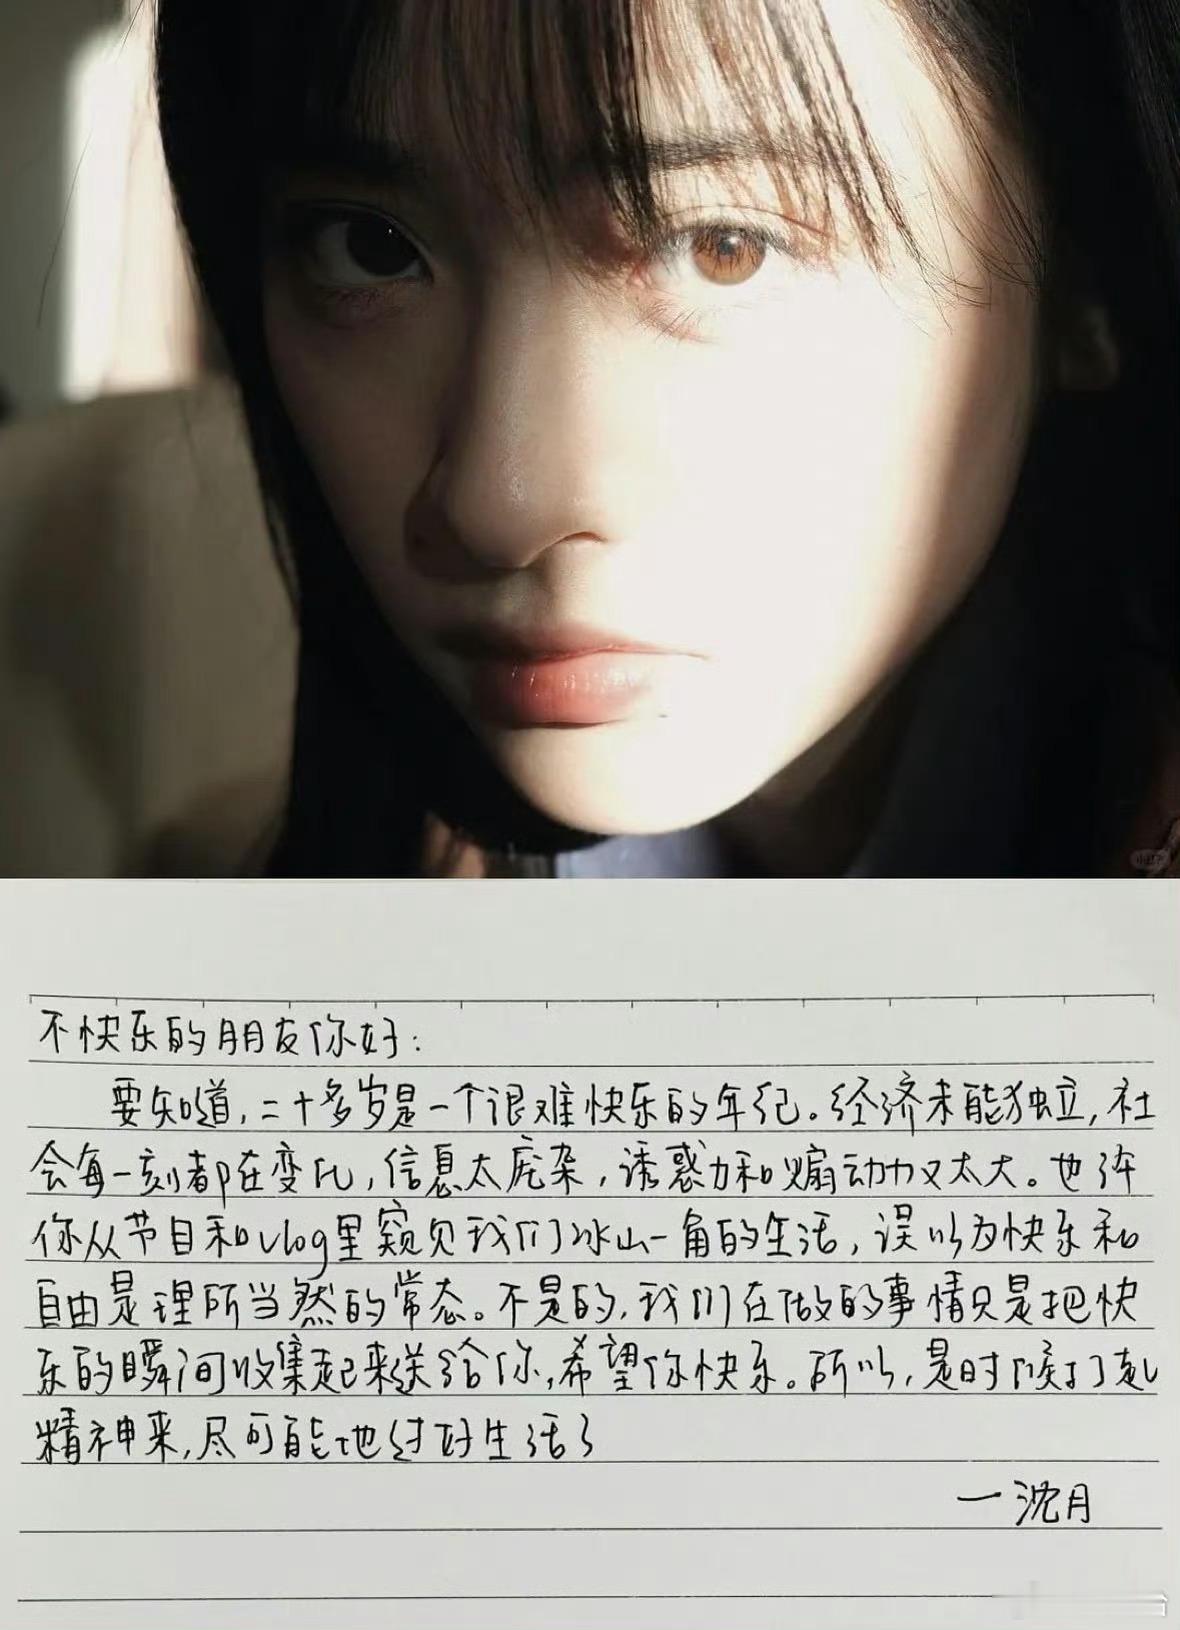 不快乐的朋友你好：
要知道，二十多岁是一个很难快乐的年纪。经济未能独立，社
会每一刻都在变化，信息太庞杂，诱惑力和煽动力又太大。也许
你从节目和vlog里窥见我们冰山一角的生活，误以为快乐和
自由是理所当然的常态。不是的，我们在做的事情只是把快
乐的瞬间收集起来送给你，希望你快乐。所以，是时候打起
精神来，尽可能地过好生活了
一沈月